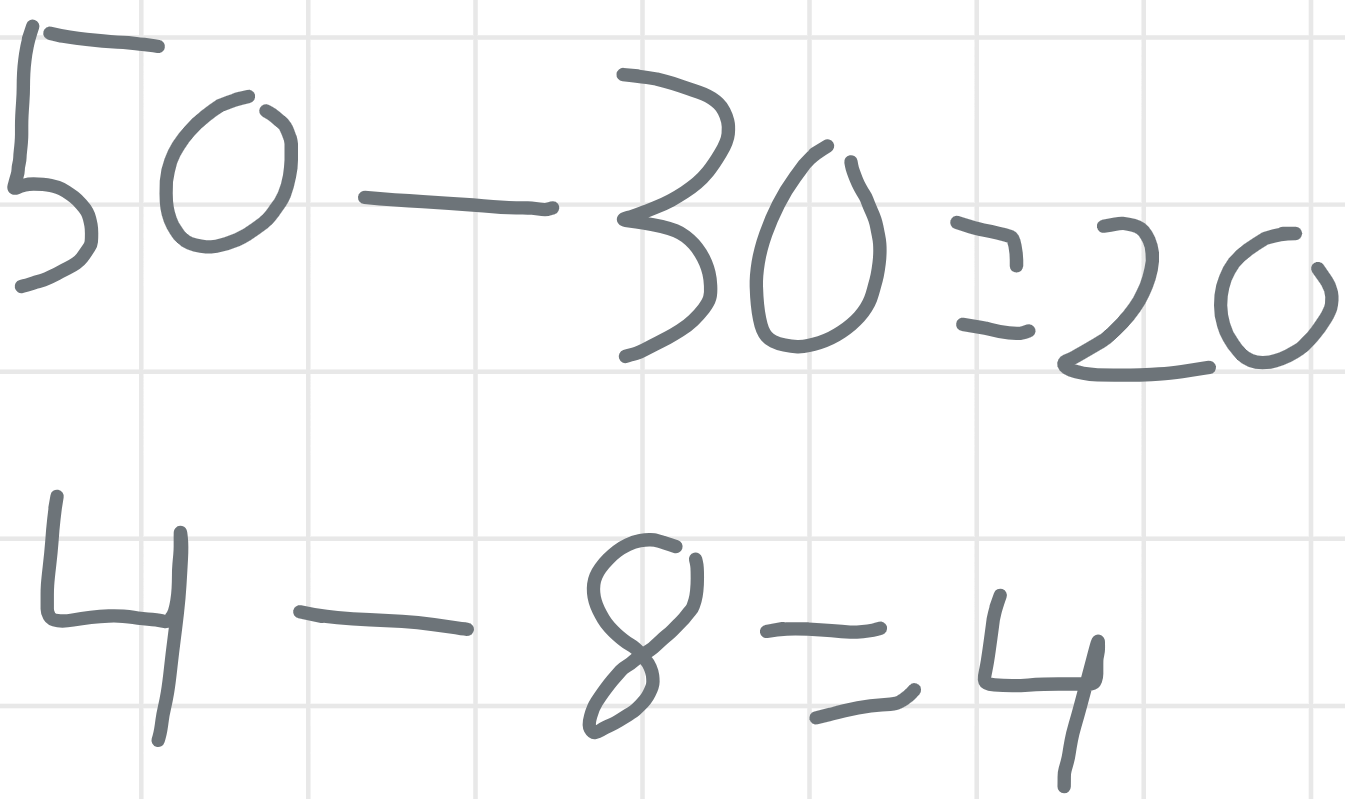 50 - 30 = 20
4 - 8 = 4